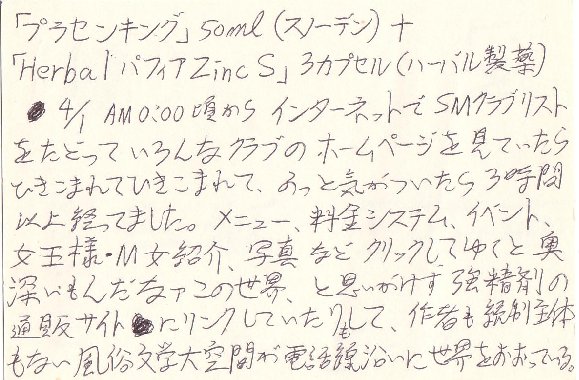 「プラセンキング」50ml(スノーデン)+
「Herbal パフィアZinc S」3カプセル(ハーバル製薬)
4/1 AM0:00頃から インターネットで SMクラブリスト
をたどって いろんなクラブの ホームページを見ていたら
ひきこまれてひきこまれて、ふっと気がついたら 3時間
以上経ってました。メニュー、料金システム、イベント、
女王様・M女紹介、写真 など クリックしてゆくと 奥
深いもんだなァこの世界、と思いがけず 強精剤の
通販サイト にリンクしていたりもして、作者も統制主体
もない 風俗文学大空間が電話線沿いに世界をおおっている。